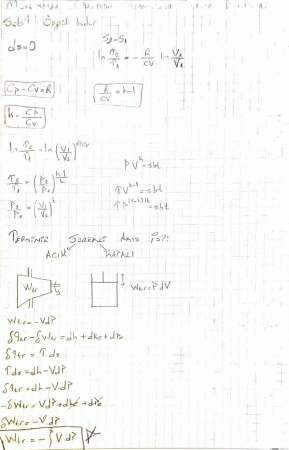 Sabit Özgül Isılar
ds=0
S2=S1
ln T2/T1 = - R/CV ln V2/V1
Cp-Cv=R
R/CV=k-1
k=Cp/Cv
ln T2/T1 = ln (V1/V2)^R/Cv
PV^k=sbt
T2/T1 = (P2/P1)^k-1/k
TV^k-1=sbt
P2/P1 = (V1/V2)^k
TP^(1-k)/k=sbt
TERSİNİR SÜREKLİ AKIŞ İŞİ
AÇIK KAPALI
Wtr
Wtr=PdV
Wtr=-VdP
δqtr-δWtr=dh+dke+dPe
δqtr=Tds
Tds=dh-VdP
δqtr=dh-VdP
-δWtr=VdP+dke+dPe
δWtr=-VdP
Wtr=-∫VdP